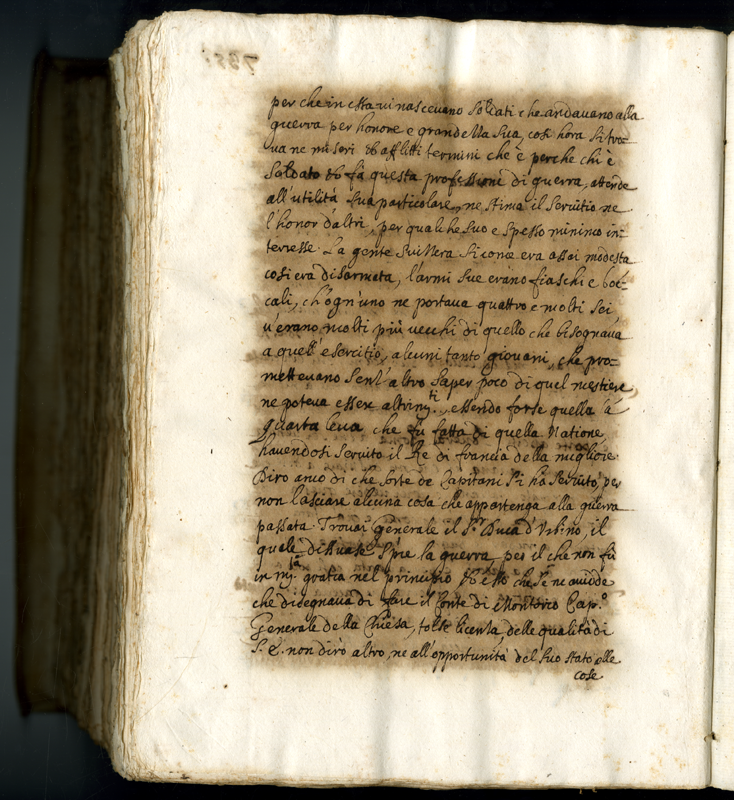 per che in essa vi nascevano Soldati che andavano alla
guerra per honore e grandezza Sua, cosi hora Si tro=
va ne miseri et afflitti termini che è perche chi è
Soldato et fà questa professione di guerra, attende
all'utilità Sua particolare, ne stima il Servitio ne
l'honor d'altri, per qual che Suo e Spesso minimo in=
teresse. La gente Suizzera Si come era assai modesta
cosi era disarmata, l'armi Sue erano fiaschi e boc=
cali, ch'ogn'uno ne portava quattro e molti Sei
v'erano molti più vecchi di quello che bisognava
a quell'esercito, alcuni tanto giovani, che pro=
mettevano Senz'altro Saper poco di quel mestiere
ne poteva essere altrim.ti, essendo forse quella la
quarta leva che fù fatta di quella Natione,
havendosi Servito il Re di francia della migliore
Dirò anco di che Sorte de Capitani Si ha Servito, per
non lasciare alcuna cosa che appartenga alla guerra
passata. Trovai Generale il S.r Duca d'Urb.no, il
quale dissuase Spre la guerra, per il che non fù
in mta. gratia nel principio et esso che Se ne avidde
che disegnava di fare il Conte di Montorio Cap.o
Generale della Chiesa, tolse licenza, delle qualità di
S. E. non dirò altro, ne all'opportunità del Suo Stato alle
cose